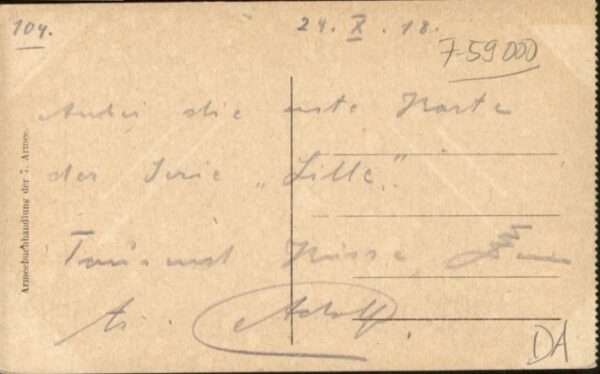 104.
24. X. 18.
7-59000
die erste Karte
der Serie „Lille".
Tausend Küsse,
Adolf.
Armeebuchhandlung der 7. Armee.
DA